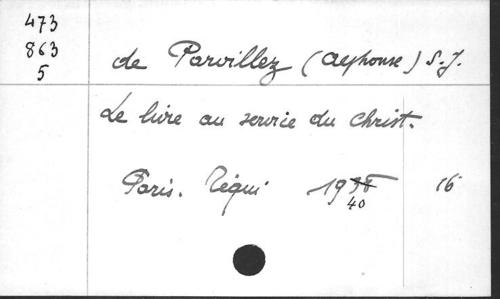 473
863
5
de Parvillez (Alphonse) S.J.
Le livre au service du Christ.
Paris. Téqui 1938 16
40